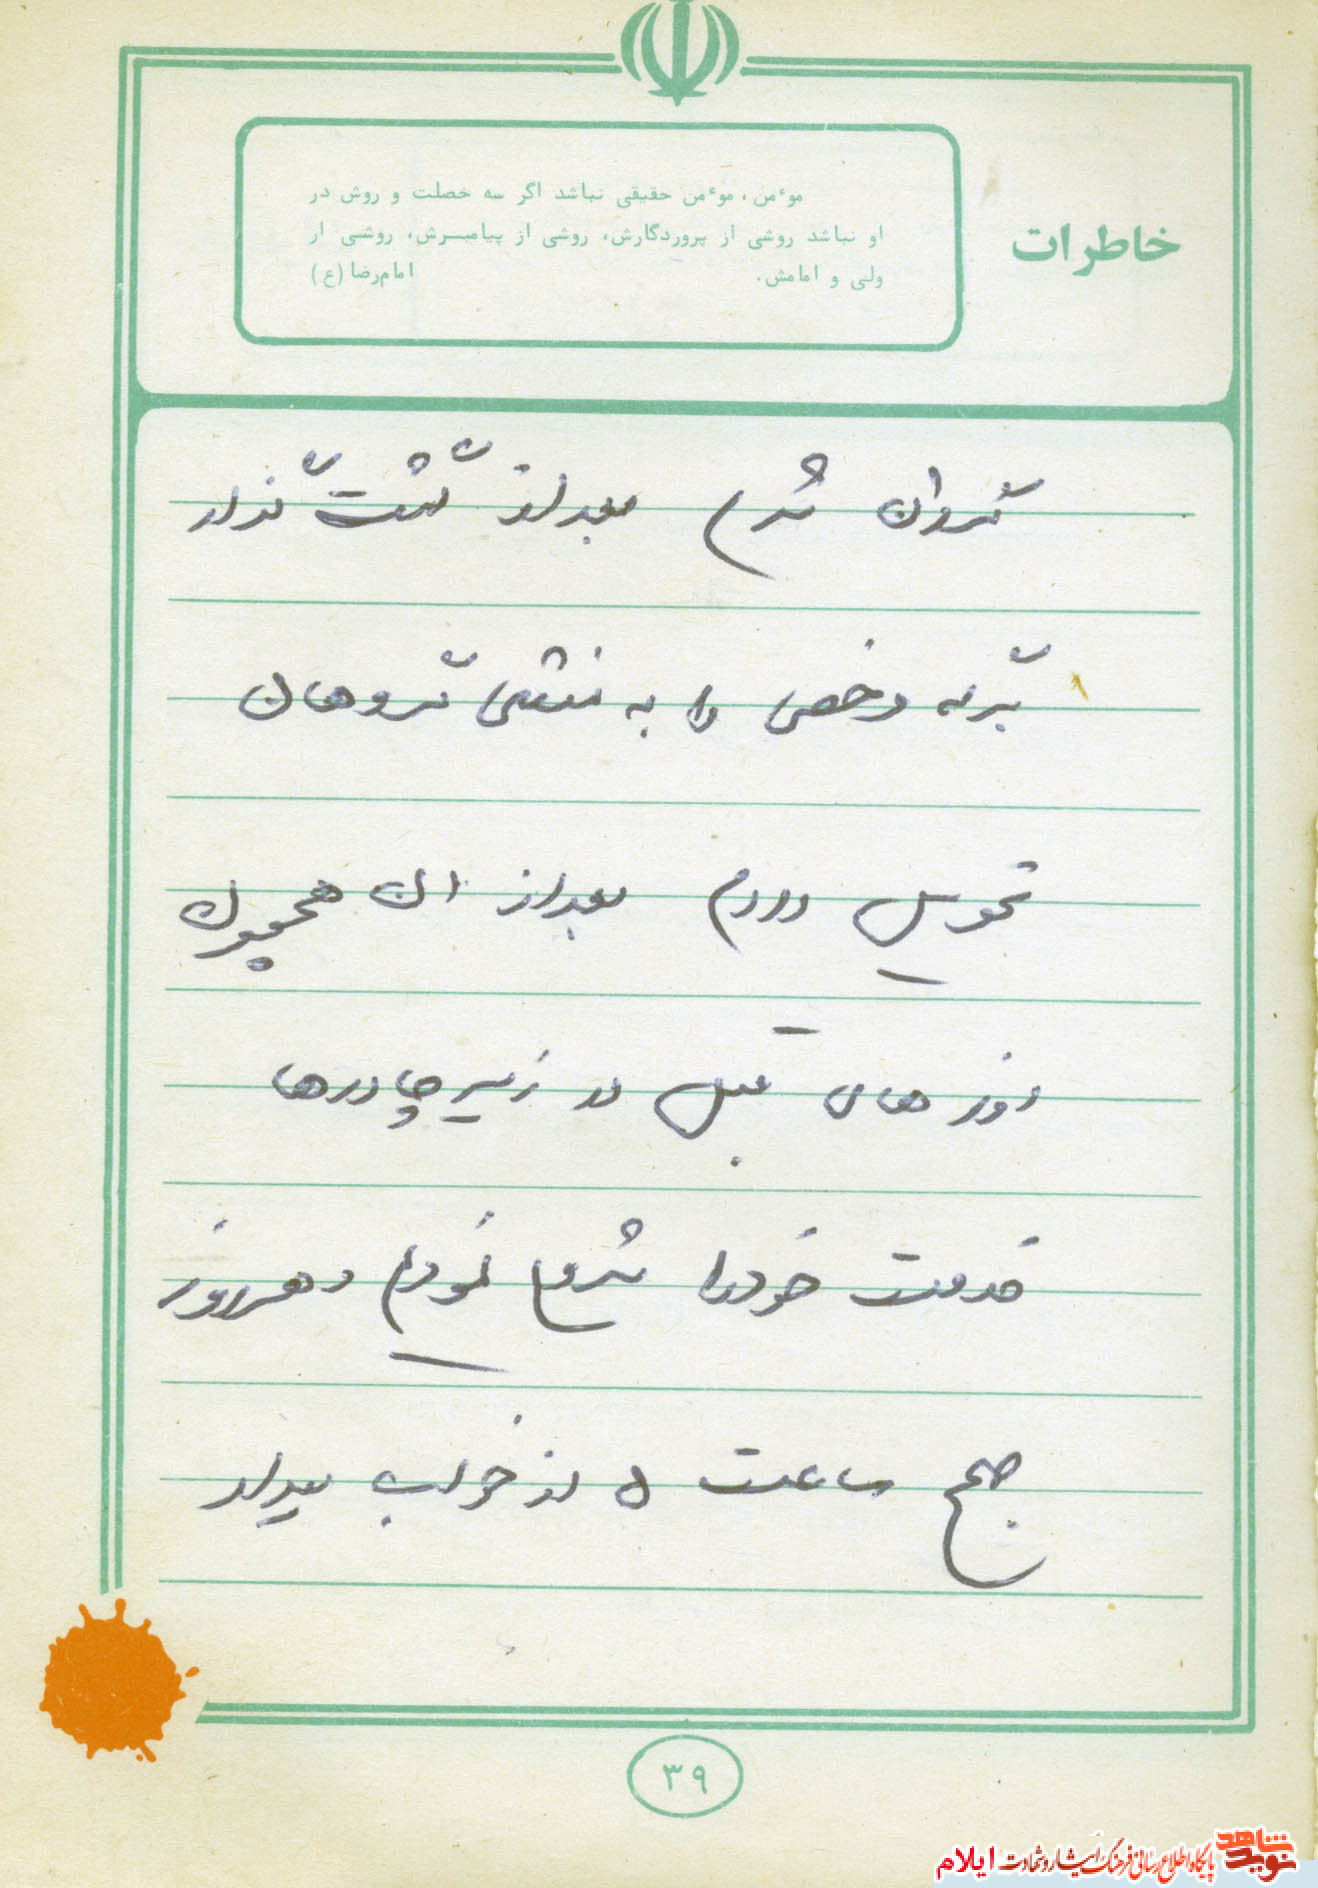 خاطرات
موءمن، موءمن حقیقی نباشد اگر سه خصلت و روش در
او نباشد روشی از پروردگارش، روشی از پیامبرش، روشی از
ولی و امامش. امام‌رضا (ع)
گروان شدم بعد از گشت گذار
برگه مرخصی را به منشی گروهان
تحویل دادم بعد از ان همچون
روزهای قبل در زیر چادرها
خدمت خود را شروع نمودم و هر روز
صبح ساعت ۵ از خواب بیدار
۳۹
نوید شاهد
پایگاه اطلاع رسانی فرهنگ ایثار و شهادت ایلام